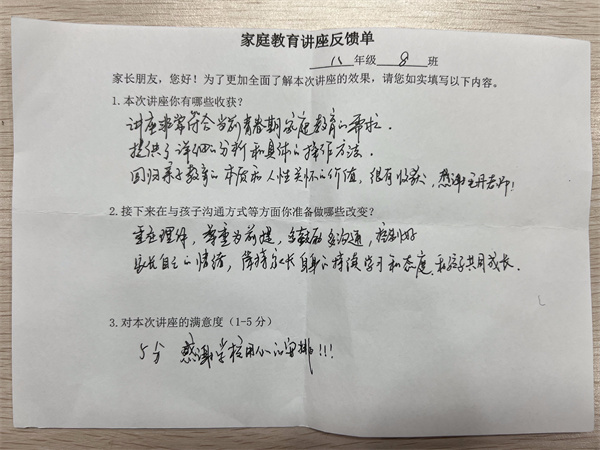 家庭教育讲座反馈单
八 年级 8 班
家长朋友，您好！为了更加全面了解本次讲座的效果，请您如实填写以下内容。
1.本次讲座你有哪些收获？
讲座非常符合当前青春期家庭教育的需求.
提供了详细的分析和具体的操作方法.
回归亲子教育的本质和人性关怀的价值，很有收获，感谢老师！
2.接下来在与孩子沟通方式等方面你准备做哪些改变？
重在理体，尊重为前提，多鼓励多沟通，控制好
家长自己的情绪，保持家长自身的持续学习和态度.和孩子共同成长.
3.对本次讲座的满意度（1-5分）
5分 感谢学校用心的安排!!!